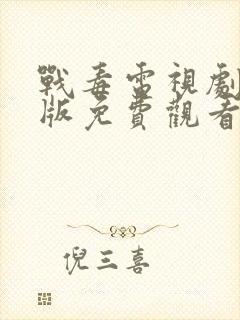 戰毒雷視劇
版免費觀看
倪三喜